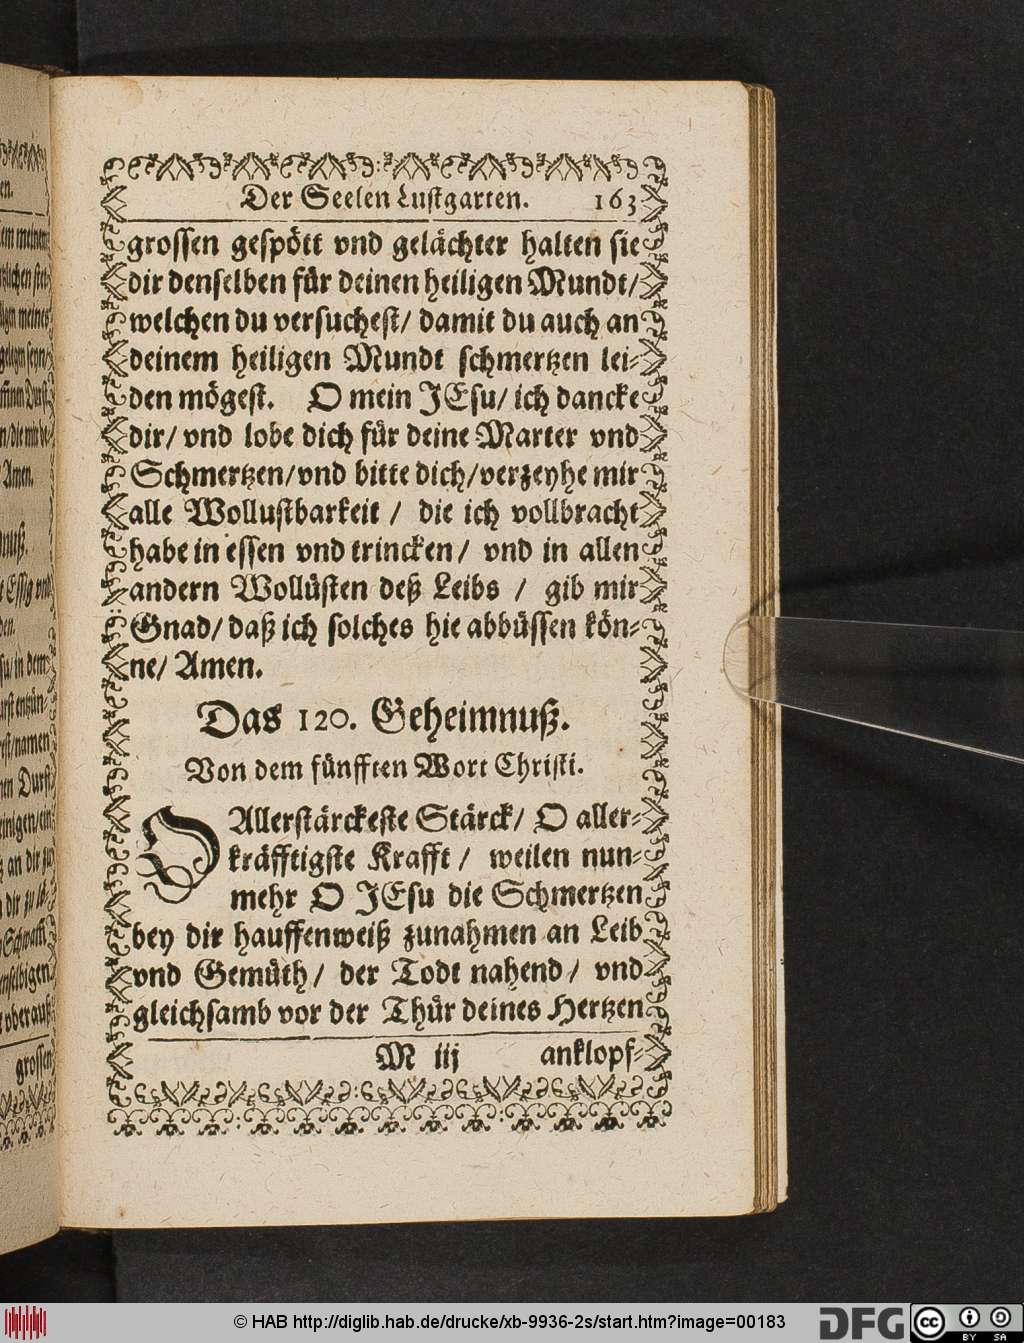 Der Seelen Lustgarten. 163
grossen gespött vnd gelächter halten sie
dir denselben für deinen heiligen Mundt/
welchen du versuchest/ damit du auch an
deinem heiligen Mundt schmertzen lei-
den mögest. O mein JEsu/ ich dancke
dir/ vnd lobe dich für deine Marter vnd
Schmertzen/ vnd bitte dich/ verzeyhe mir
alle Wollustbarkeit / die ich vollbracht
habe in essen vnd trincken/ vnd in allen
andern Wollüsten deß Leibs / gib mir
Gnad/ daß ich solches hie abbüssen kön-
ne/ Amen.
Das 120. Geheimnuß.
Von dem fünfften Wort Christi.
O Allerstärckeste Stärck/ O aller-
kräfftigste Krafft / weilen nun-
mehr O JEsu die Schmertzen
bey dir hauffenweiß zunahmen an Leib
vnd Gemüth/ der Todt nahend/ vnd
gleichsamb vor der Thür deines Hertzen
M iij anklopf-
© HAB http://diglib.hab.de/drucke/xb-9936-2s/start.htm?image=00183
DFG
cc
BY SA